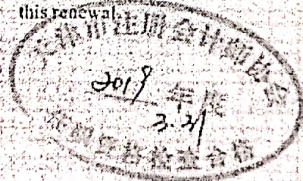 this renewal.
天津市注册会计师协会
2019 年度
3.21
任职资格检查合格